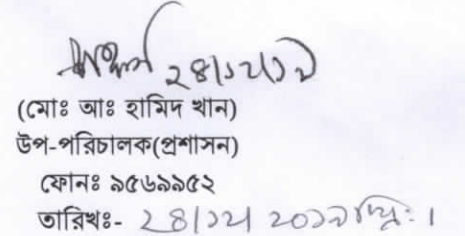 ২৪/১২/১৯
(মোঃ আঃ হামিদ খান)
উপ-পরিচালক(প্রশাসন)
ফোনঃ ৯৫৬৯৯৫২
তারিখঃ- ২৪/১২/২০১৯খ্রিঃ।